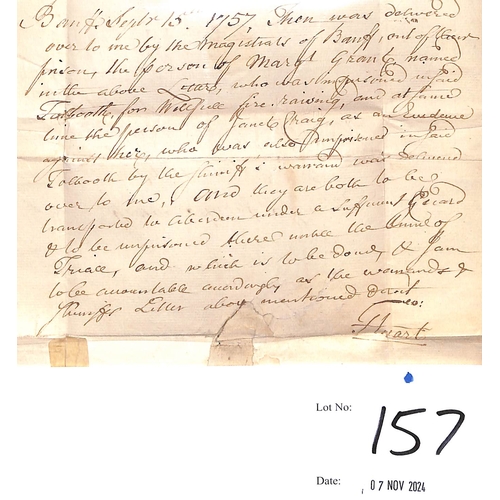 Banff Septr 15th 1757, Then was delivered
over to me by the magistrats of Banff, out of their
prison, the person of Margt Grant, named
in the above Letter, who was Imprisoned in said
Tolbooth, for Willfull fire raising, and at same
time the person of Janet Craig, as an Evidence
against her, who was also Imprisoned in said
Tolbooth by the Shirriff's warrant was delivered
over to me, and they are both to be
transported to Aberdeen under a Sufficient Guard
& to be imprisoned there untill the time of
Triall, and which is to be done, & I am
to be accountable accordingly as the warrands &
Letter above mentioned direct
Geo:
Stuart
Lot No: 157
Date: 07 NOV 2024